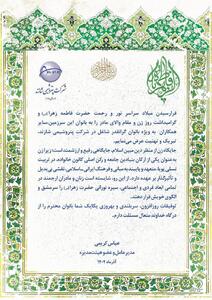 شرکت پتروشیمی شازند
فرارسیدن میلاد سراسر نور و رحمت حضرت فاطمه زهرا(س) و
گرامیداشت روز زن و مقام والای مادر را به بانوان این سرزمین سایر
همکاران به ویژه بانوان گرانقدر شاغل در شرکت پتروشیمی شازند،
تبریک و تهنیت عرض می‌نمایم.
جایگاه زن از منظر دین مبین اسلام، جایگاهی رفیع و ارزشمند است؛ زیرا زن
به عنوان یکی از ارکان بنیادین جامعه و رکن اصلی کانون خانواده، در تربیت
نسلی پویا، متعهد و پایبند به مبانی و فرهنگ ایرانی_اسلامی، نقشی بی‌بدیل
و تأثیرگذار بر عهده دارد. از این رو، شایسته است زنان و مادران ارجمند در
تمامی ابعاد فردی و اجتماعی، سیره نورانی حضرت زهرا(س) را سرمشق و
الگوی خویش قرار دهند.
توفیقات روزافزون، سربلندی و بهروزی یکایک شما بانوان محترم را از
درگاه خداوند متعال مسئلت دارم.
عباس کریمی
مدیرعامل و عضو هیئت مدیره
آذرماه ۱۴۰۴